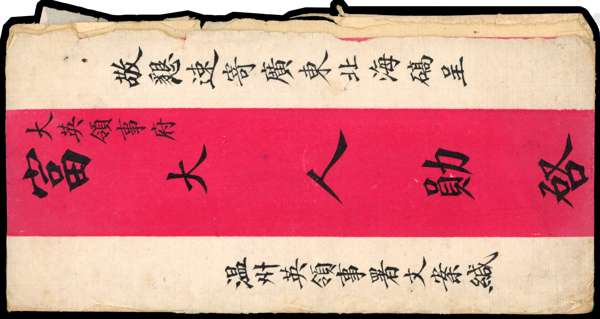 敬懇速寄廣東北海碻呈
大英領事府
富大人勛啓
温州英領事署文案緘